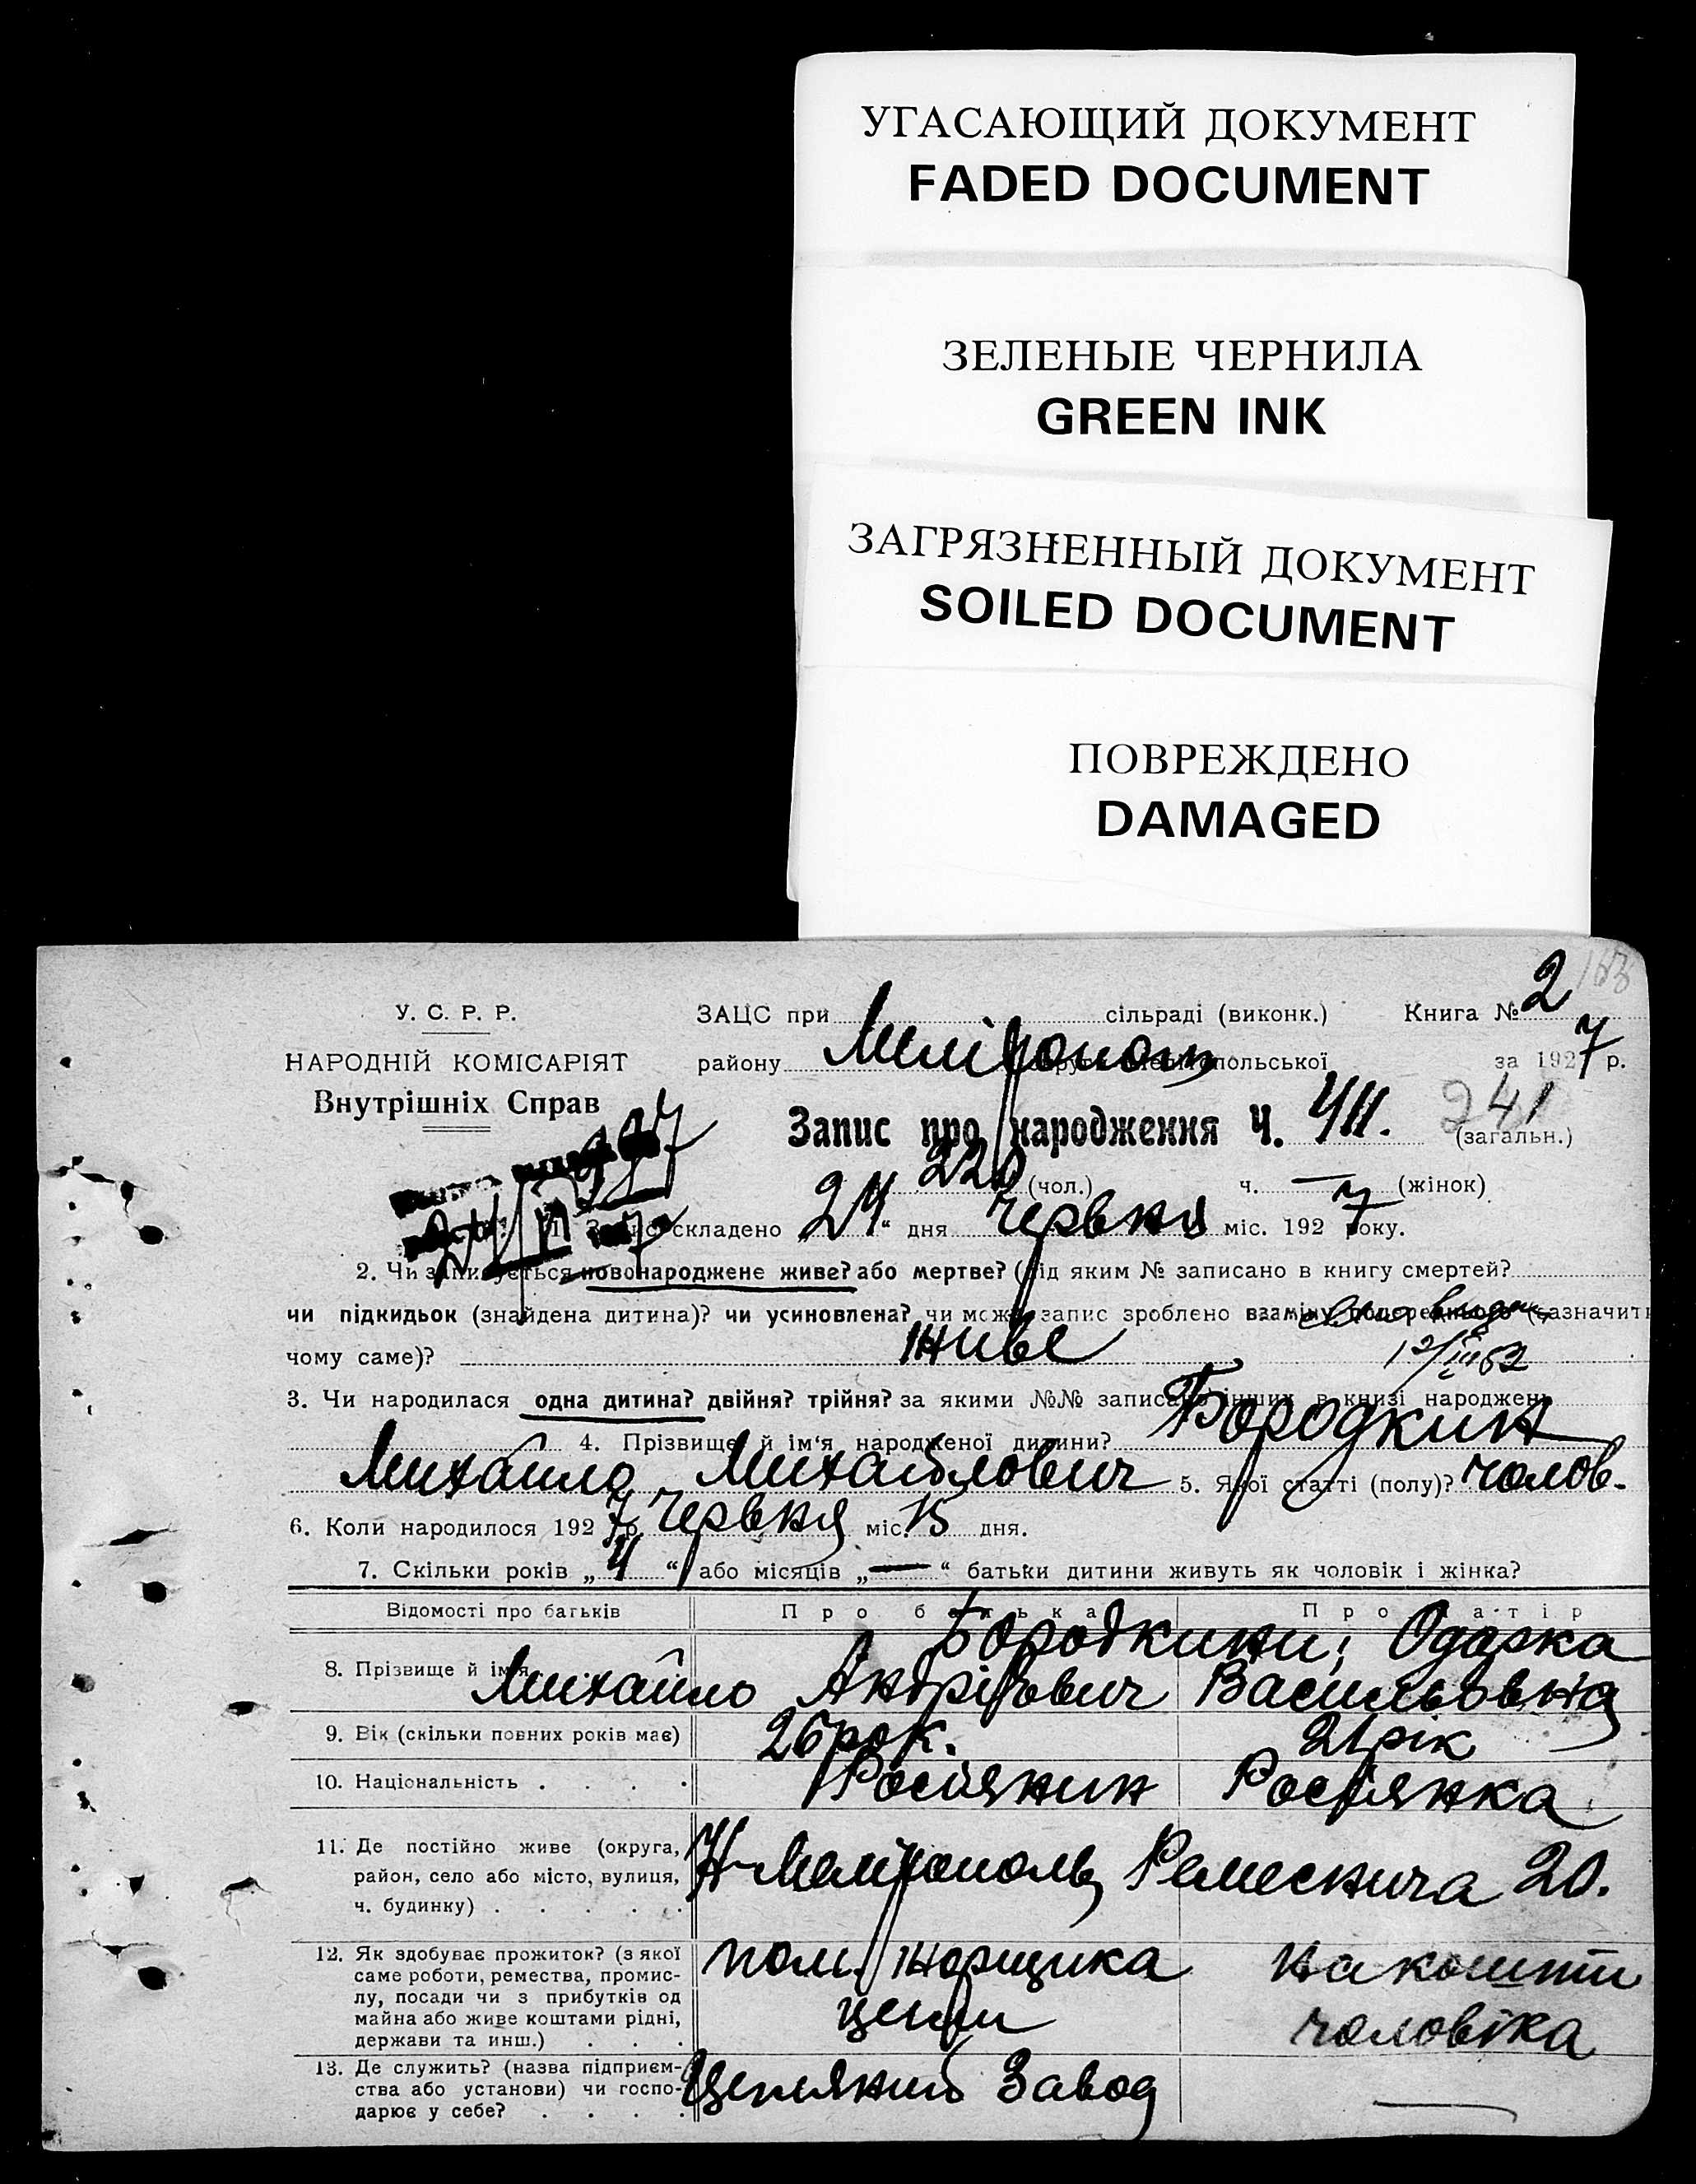 УГАСАЮЩИЙ ДОКУМЕНТ
FADED DOCUMENT
ЗЕЛЕНЫЕ ЧЕРНИЛА
GREEN INK
ЗАГРЯЗНЕННЫЙ ДОКУМЕНТ
SOILED DOCUMENT
ПОВРЕЖДЕНО
DAMAGED
У. С. Р. Р. ЗАЦС при сільраді (виконк.) Книга № 2
НАРОДНІЙ КОМІСАРІЯТ району за 1927 р.
Внутрішніх Справ
Запис про народження Ч. 411. 241 (загальн.)
220 (чол.) ч. — (жінок)
складено „24“ дня червня міс. 1927 року.
2. Чи записується новонароджене живе? або мертве? (під яким № записано в книгу смертей?
чи підкидьок (знайдена дитина)? чи усиновлена? чи може запис зроблено взамін попереднього (зазначити
чому саме)? живе
3. Чи народилася одна дитина? двійня? трійня? за якими №№ записано інших в книзі народжень
4. Прізвище й ім'я народженої дитини? Бородкин
Михайло Михайлович 5. Якої статті (полу)? чолов.
6. Коли народилося 1927 р. червня міс. 15 дня.
7. Скільки років „4“ або місяців „—“ батьки дитини живуть як чоловік і жінка?
Відомості про батьків Про батька Про матір
Бородкини; Одарка
8. Прізвище й ім'я Михайло Андрійович Васильовна
9. Вік (скільки повних років має) 26 рок. 21 рік
10. Національність . . . . Росіянин Росіянка
11. Де постійно живе (округа,
район, село або місто, вулиця,
ч. будинку) . . . . . 20.
12. Як здобуває прожиток? (з якої
саме роботи, ремества, промис-
лу, посади чи з прибутків од
майна або живе коштами рідні,
держави та инш.) . . . на кошти
чоловіка
13. Де служить? (назва підприєм-
ства або установи) чи госпо-
дарює у себе? . . . . Завод —